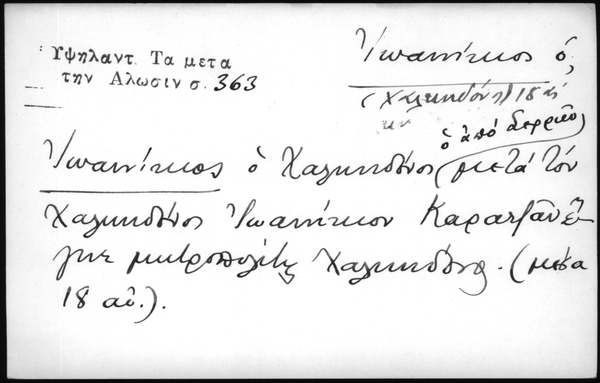 Ὑψηλαντ. Τα μετα
την Αλωσιν σ. 363
Ἰωαννίκιος ὁ,
(Χαλκηδόνος) 18 αἰ
ὁ ἀπό Δερκῶν
Ἰωαννίκιος ὁ Χαλκηδόνος μετά τόν
Χαλκηδόνος Ἰωαννίκιον Καρατζᾶν ἔ-
γινε μητροπολίτης Χαλκηδόνος. (μέσα
18 αἰ.).